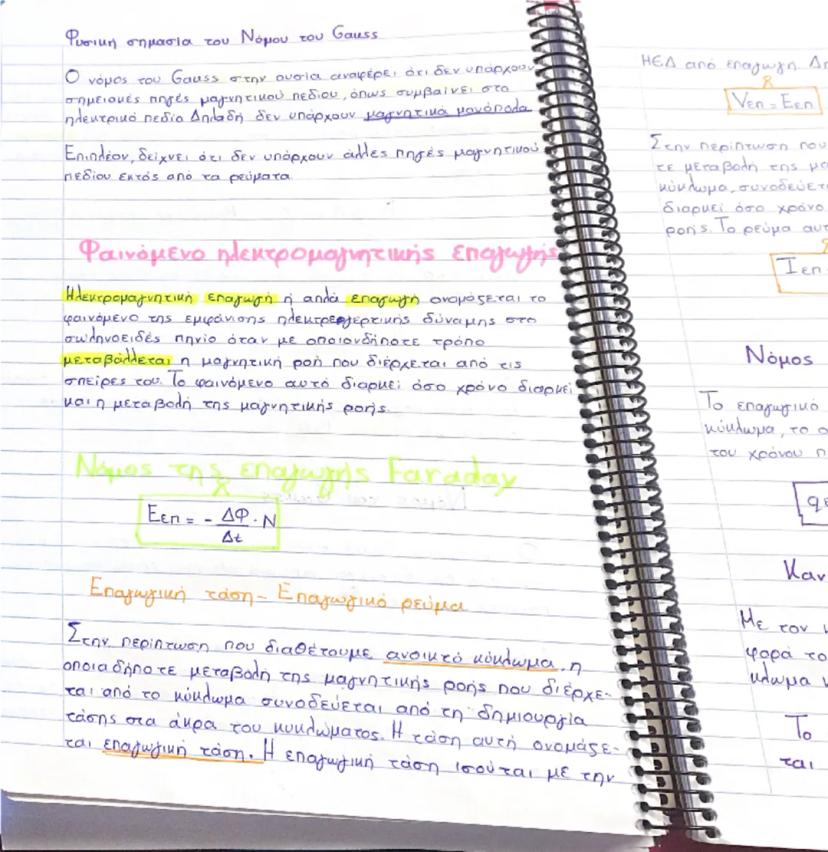 Φυσική σημασία του Νόμου του Gauss
Ο νόμος του Gauss στην ουσία αναφέρει ότι δεν υπάρχουν
σημειακές πηγές μαγνητικού πεδίου, όπως συμβαίνει στο
ηλεκτρικό πεδίο Δηλαδή δεν υπάρχουν μαγνητικά μονόπολα.
Επιπλέον, δείχνει ότι δεν υπάρχουν άλλες πηγές μαγνητικού
πεδίου εκτός από τα ρεύματα.
Φαινόμενο ηλεκτρομαγνητικής επαγωγής
Ηλεκτρομαγνητική επαγωγή ή απλά επαγωγή ονομάζεται το
φαινόμενο της εμφάνισης ηλεκτρεγερτικής δύναμης στο
σωληνοειδές πηνίο όταν με οποιονδήποτε τρόπο
μεταβάλλεται η μαγνητική ροή που διέρχεται από τις
σπείρες του. Το φαινόμενο αυτό διαρκεί όσο χρόνο διαρκεί
και η μεταβολή της μαγνητικής ροής.
Νόμος της επαγωγής Faraday
Εεπ = - ΔΦ/Δt · N
Επαγωγική τάση - Επαγωγικό ρεύμα
Στην περίπτωση που διαθέτουμε ανοικτό κύκλωμα, η
οποιαδήποτε μεταβολή της μαγνητικής ροής που διέρχε-
ται από το κύκλωμα συνοδεύεται από τη δημιουργία
τάσης στα άκρα του κυκλώματος. Η τάση αυτή ονομάζε-
ται επαγωγική τάση. Η επαγωγική τάση ισούται με την
ΗΕΔ από επαγωγή
Vεπ = Εεπ
Στην περίπτωση που
τε μεταβολή της μα
κύκλωμα, συνοδεύετ
διαρκεί όσο χρόνο
ροής. Το ρεύμα αυτ
Ιεπ
Νόμος
Το επαγωγικό
κύκλωμα, το ο
του χρόνου π
qε
Καν
Με τον
φορά το
κλωμα
Το
ται